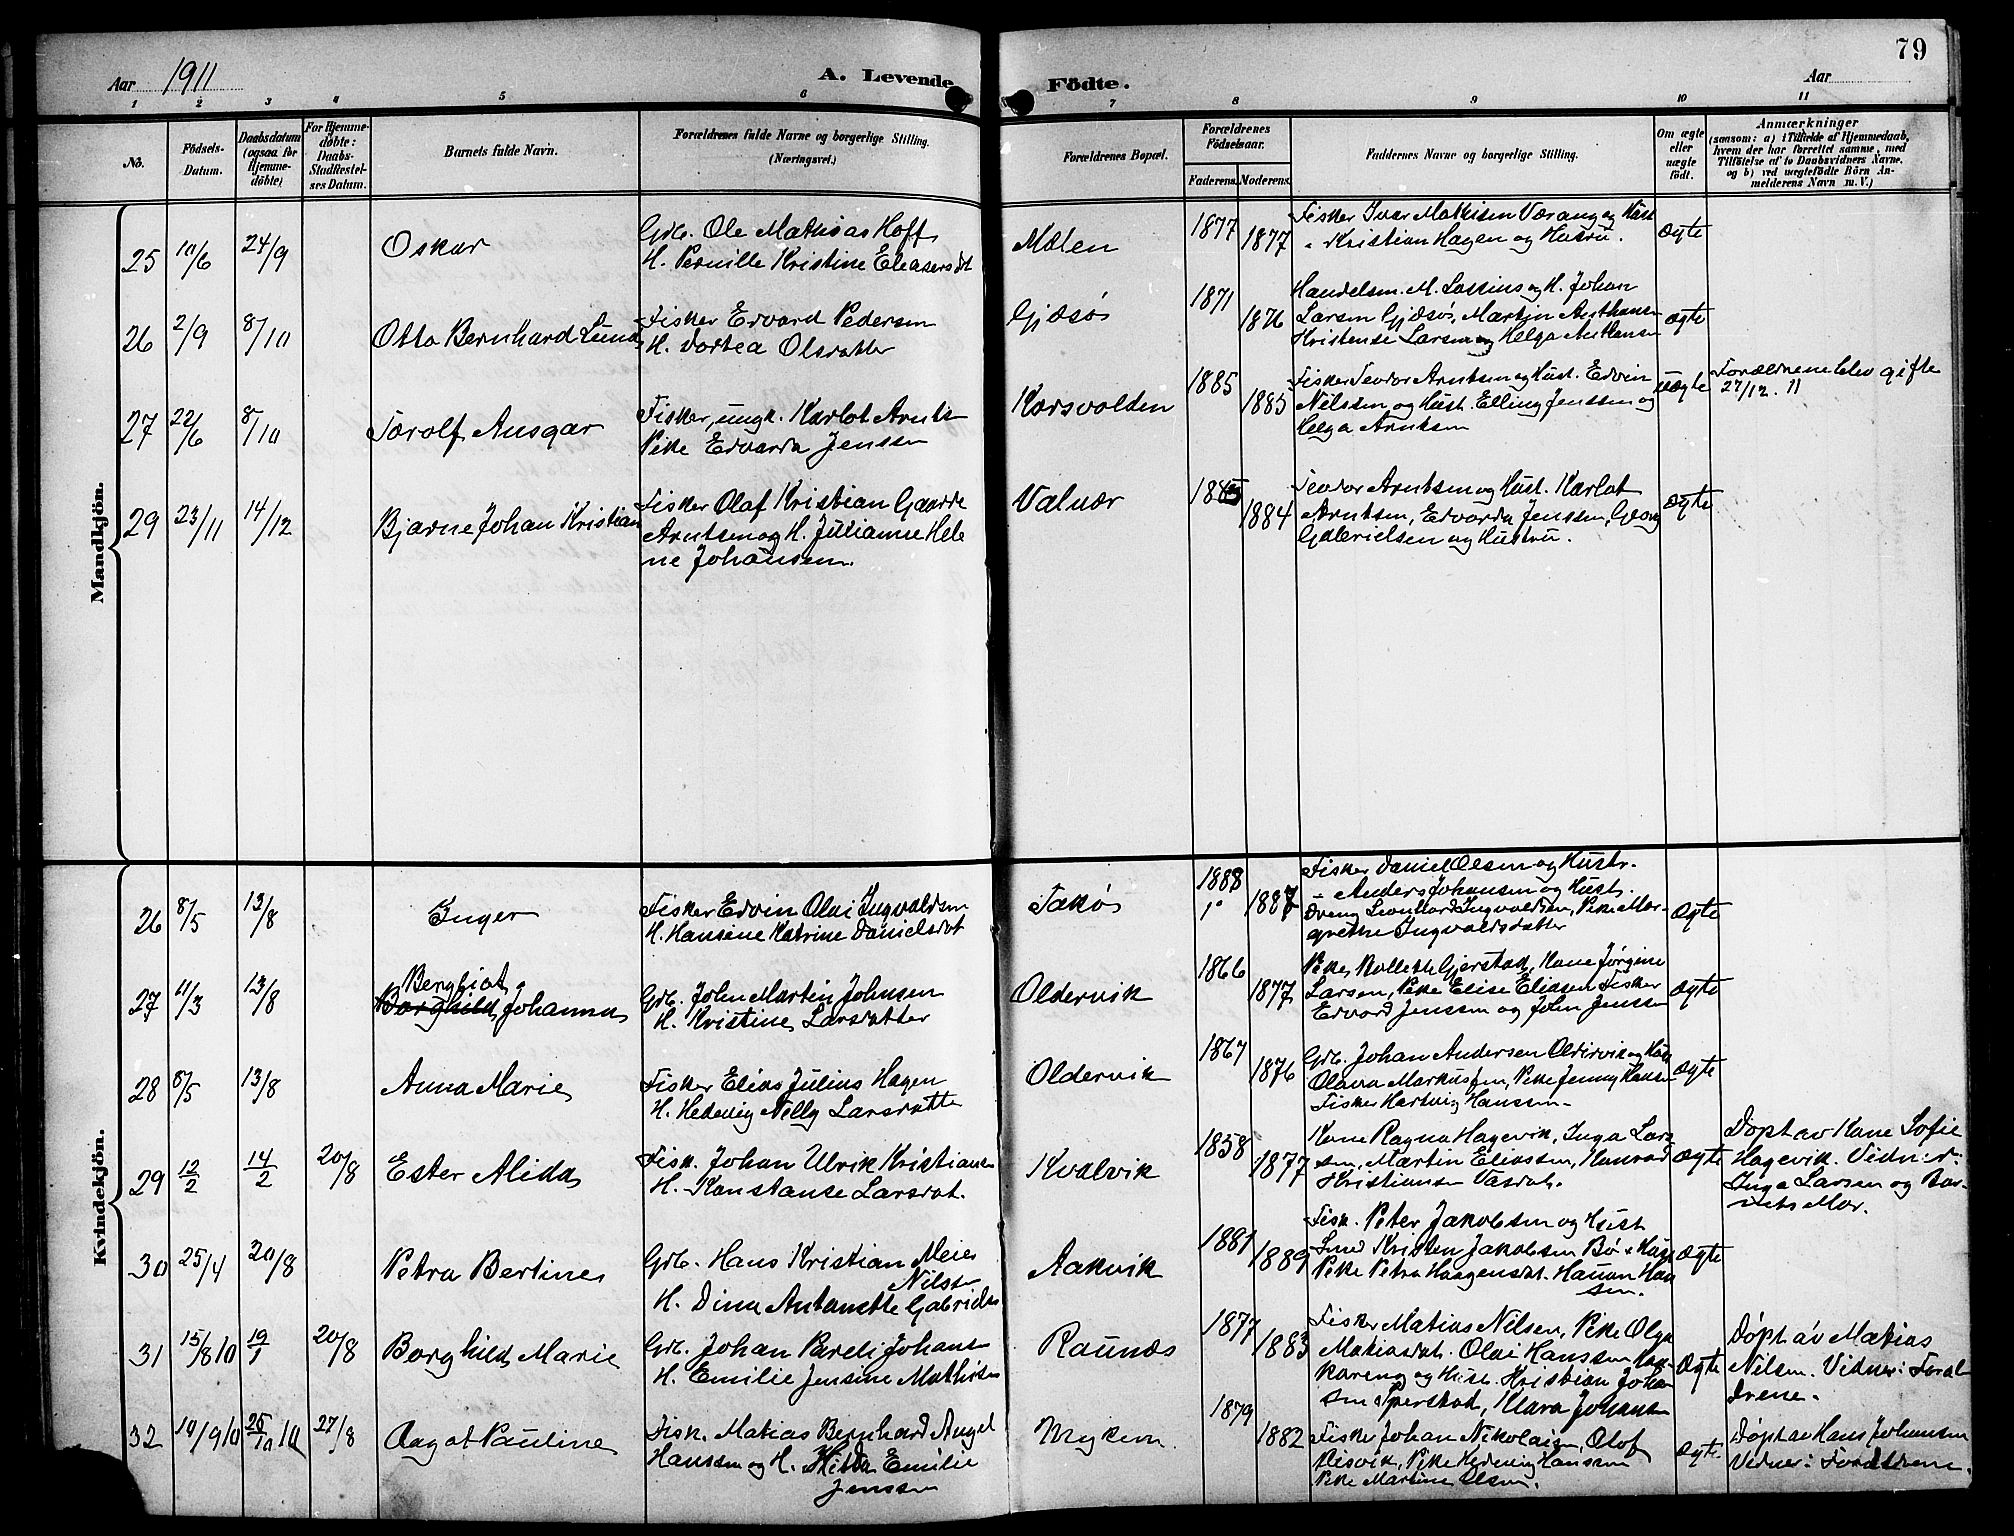 79
Aar 1911
A. Levende Födte.
Aar
1 2 3 4 5 6 7 8 9 10 11
No.
Födsels-Datum.
Daabsdatum (ogsaa for Hjemme-döbte)
For Hjemme-döbte: Daabs-Stadfæstel-ses Datum.
Barnets fulde Navn.
Forældrenes fulde Navne og borgerlige Stilling. (Næringsvei.)
Forældrenes Bopæl.
Forældrenes Födselsaar.
Faderens. Moderens.
Faddernes Navne og borgerlige Stilling.
Om ægte eller uægte födt.
Anmærkninger
(saasom: a) i Tilfælde af Hjemmedaab,
hvem der har forrettet samme, med
Tilföielse af to Daabsvidners Navne.
og b) ved uægtefödte Börn An-
melderens Navn m. V.)
Mandkjön.
25 10/6 24/9 Oskar
Grb. Ole Mathias Hoff
H. Pernille Kristine Eleasersdt
Mælen 1877 1877
Fisker Ivar Mathisen Værang og Hust
" Kristian Hagen og Hustru.
ægte
26 2/9 8/10 Otto Bernhard Lund
Fisker Edvard Pedersen
H. Dortea Olsdatter
Gjæsø 1871 1876
Handelsm. M. Lassius og H. Johan
Larsen Gjæsø, Martin Anthonsen
Kristense Larsen og Helga Anthonsen
ægte
27 22/6 8/10 Torolf Ansgar
Fisker, ungk. Karlot Arnts
Pike Edvarda Jenssen
Korsvolden 1885 1885
Fisker Teodor Arntsen og Hust. Edvin
Nilssen og Hust. Elling Jenssen og
Helga Arntsen
uægte
Forældrene blev gifte
27/12. 11
29 23/11 14/12 Bjarne Johan Kristian
Fisker Olaf Kristian Gaarde
Arntsen og H. Julianne Hele
ne Johansen.
Valvær 1884
Teodor Arntsen og Hust. Karlot
Arntsen, Edvarda Jenssen, Georg
Gabrielsen og Hustru.
ægte
Kvindekjön.
26 8/5 13/8 Inger
Fisker Edvin Olai Ingvaldsen
H. Hansine Katrine Danielsdat
Takø 1888 1887
Fisker Daniel Olsen og Hustr.
" Anders Johansen og Hust.
Dreng Leonhard Ingvaldsen, Pike Mar-
grethe Ingvaldsdatter
ægte
27 11/3 13/8 Bergliot
Borghild Johanna
Grb. John Martin Johnsen
H. Kristine Larsdatter
Oldervik 1866 1877
Pike Kollette Gjerstad, Kone Jørgine
Larsen, Pike Elise Eliasen Fisker
Edvard Jenssen og John Jenssen
ægte
28 8/5 13/8 Anna Marie
Fisker Elias Julius Hagen
H. Hedevig Nelly Larsdatte
Oldervik 1867 1876
Grb. Johan Andersen Oldervik og Hust
Olava Markussen, Pike Jenny Hanse
Fisker Hartvig Hanssen.
ægte
29 12/2 14/2 20/8 Ester Alida
Fisk. Johan Ulrik Kristianse
H. Konstanse Larsdat.
Kvalvik 1858 1877
Kone Ragna Hagevik, Inga Lars
sen, Martin Eliassen, Konrad
Kristiansen Vasdal.
ægte
Døpt av Kone Sofie
Hagevik. Vidner:
Inga Larsen og Bar-
nets Mor.
30 25/4 20/8 Petra Bertine
Grb. Hans Kristian Meier
Nilsen
H. Dina Antonette Gabrielse
Aakvik 1881 1889
Fisk. Peter Jakobsen og Hust
Smed Kristen Jakobsen Bø & Hust
Pike Petra Haagensdat. Haavar Han
sen.
ægte
31 15/8 10 19/1 20/8 Borghild Marie
Grb. Johan Pareli Johans
H. Emilie Jensine Mathise
Raunæs 1877 1883
Fisker Matias Nilsen, Pike Olga
Matiasdat. Olai Hanssen Kan-
kareng og Hust. Kristian Johan
sen Sperstad, Klara Johans
ægte
Døpt av Matias
Nilsen. Vidner: Foræl
drene.
32 19/9 10 25/10 10 27/8 Aagot Pauline
Fisk. Matias Bernhard Angel
Hanssen og H. Hilda Emilie
Jenssen
Myken 1879 1882
Fisker Johan Nikolaisen, Olof
Risvik, Pike Hedevig Hanssen
Pike Martine Olsen.
ægte
Døpt av Hans Johansen
Vidner: Forældrene.